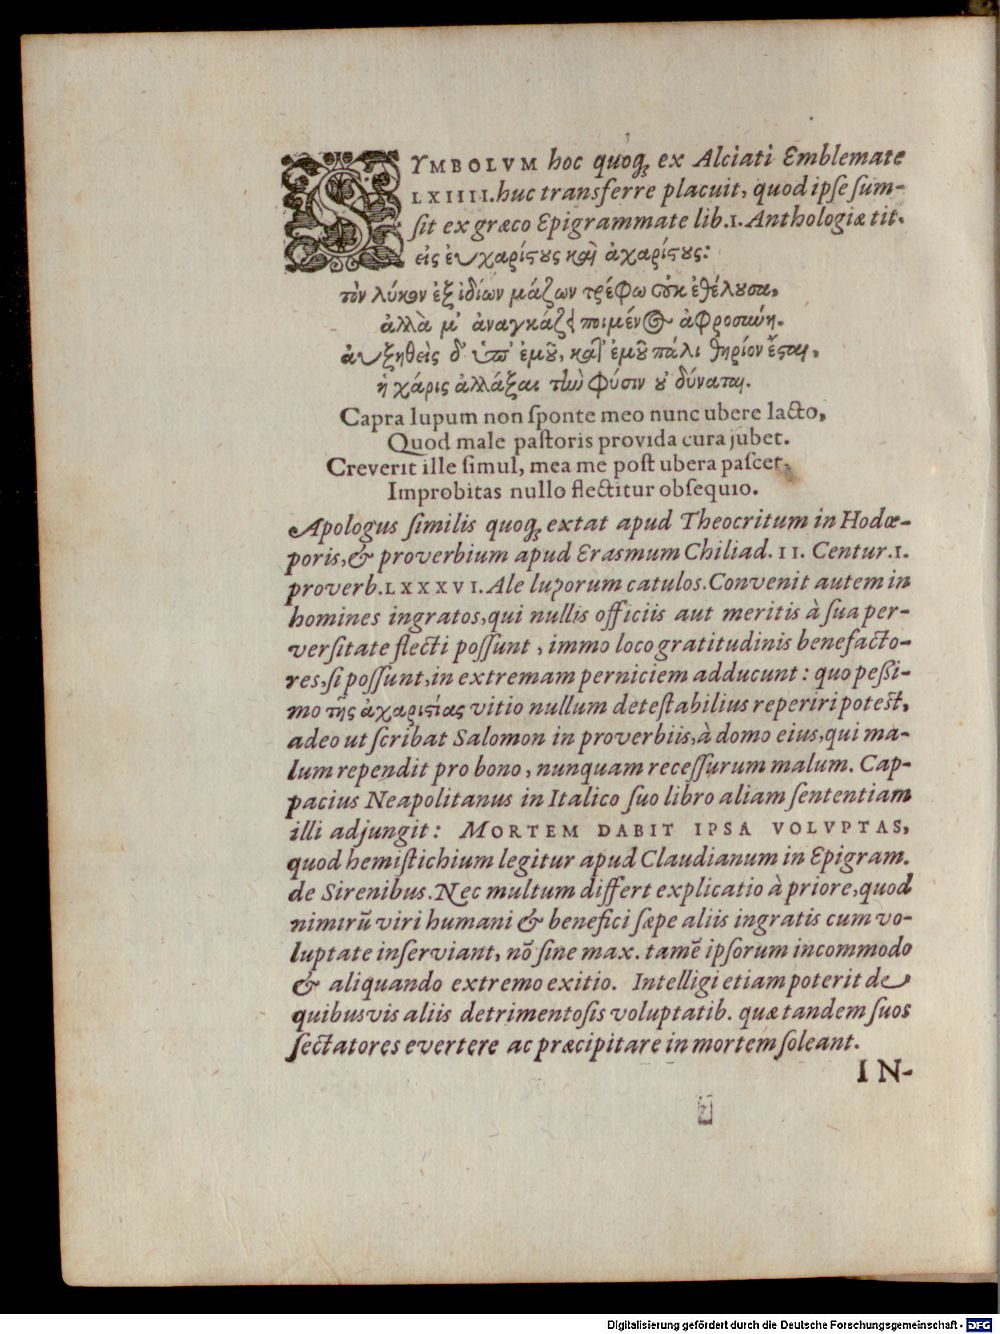 SYMBOLVM hoc quoq; ex Alciati Emblemate
LXIIII. huc transferre placuit, quod ipse sum-
sit ex græco Epigrammate lib. I. Anthologiæ tit.
εἰς εὐχαρίστους καὶ ἀχαρίστους:
τὸν λύκον ἐξ ἰδίων μάζων τρέφω οὐκ ἐθέλουσα,
ἀλλὰ μ' ἀναγκάζει ποιμένος ἀφροσύνη.
αὐξηθεὶς δ' ὑπ' ἐμοῦ, κατ' ἐμοῦ πάλι θηρίον ἔσται,
ἡ χάρις ἀλλάξαι τὴν φύσιν οὐ δύναται.
Capra lupum non sponte meo nunc ubere lacto,
Quod male pastoris provida cura jubet.
Creverit ille simul, mea me post ubera pascet,
Improbitas nullo flectitur obsequio.
Apologus similis quoq; extat apud Theocritum in Hodœ-
poris, & proverbium apud Erasmum Chiliad. II. Centur. I.
proverb. LXXXVI. Ale luporum catulos. Convenit autem in
homines ingratos, qui nullis officiis aut meritis à sua per-
versitate flecti possunt, immo loco gratitudinis benefacto-
res, si possunt, in extremam perniciem adducunt: quo peßi-
mo τῆς ἀχαριστίας vitio nullum detestabilius reperiri potest,
adeo ut scribat Salomon in proverbiis, à domo eius, qui ma-
lum rependit pro bono, nunquam recessurum malum. Cap-
pacius Neapolitanus in Italico suo libro aliam sententiam
illi adjungit: MORTEM DABIT IPSA VOLVPTAS,
quod hemistichium legitur apud Claudianum in Epigram.
de Sirenibus. Nec multum differt explicatio à priore, quod
nimirũ viri humani & benefici sæpe aliis ingratis cum vo-
luptate inserviant, nõ sine max. tamẽ ipsorum incommodo
& aliquando extremo exitio. Intelligi etiam poterit de
quibusvis aliis detrimentosis voluptatib. quæ tandem suos
sectatores evertere ac præcipitare in mortem soleant.
IN-
Digitalisierung gefördert durch die Deutsche Forschungsgemeinschaft - DFG